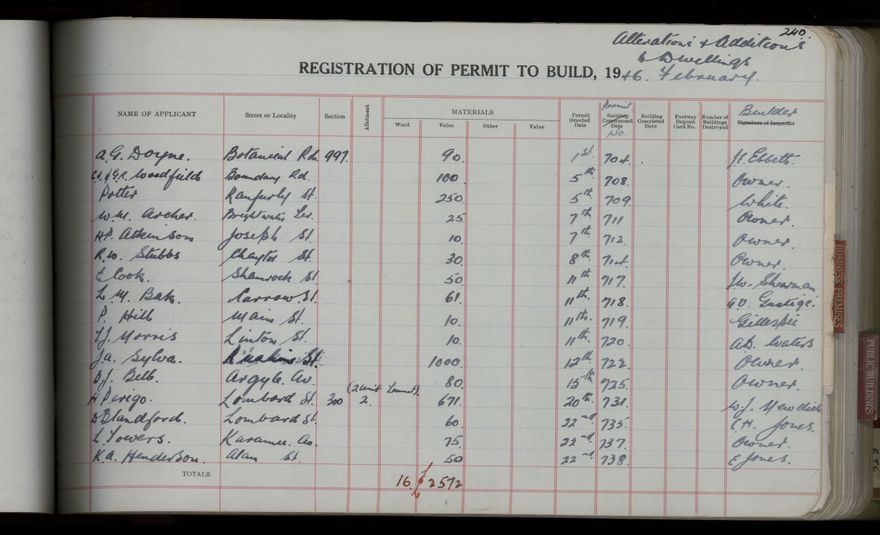 240.
Alterations & Additions
to Dwellings
REGISTRATION OF PERMIT TO BUILD, 1946. February.
NAME OF APPLICANT Street or Locality Section Allotment MATERIALS Wood Value Other Value Permit Granted Date Permit Building Commenced Date No. Building Completed Date Footway Deposit Card No. Number of Buildings Destroyed Builder Signature of Inspector
A.G. Doyne. Botanical Rd. 997. 90. 1st. 704. J. Ebbett.
Woodfields Boundary Rd. 100 5th 708. Owner.
Potter Ranfurly St. 250. 5th 709 White.
W.M. Archer. Ter. 25 7th 711 Owner.
H.P. Atkinson Joseph St. 10. 7th 712. Owner.
R.W. Stubbs Chaytor St. 30 8th 714. Owner.
E Cook. Shamrock St 50 11th 717. J.W. Shearman
L. M. Bak. Carrow St. 61. 11th. 718.
P. Hills Main St. 10. 11th. 719. Gillespie
T.J. Morris Linton St. 10. 11th. 720. A.B. Waters
J.A. Sylva. St. 1000. 12th 722. Owner.
D.J. Bell. Argyle Av. 80. 15th 725. Owner.
H Perego. Lombard St. 300 (2 Unit 2. 671. 20th 731.
D Blandford. Lombard St. 60. 22nd 735. C.H. Jones.
L Towers. Karamea. Av. 75 22nd 737. Owner.
K.A. Henderson. Alan St. 50 22nd 738. E Jones.
TOTALS 16. 2572
BUSINESS PREMISES
PUBLIC BUILDINGS